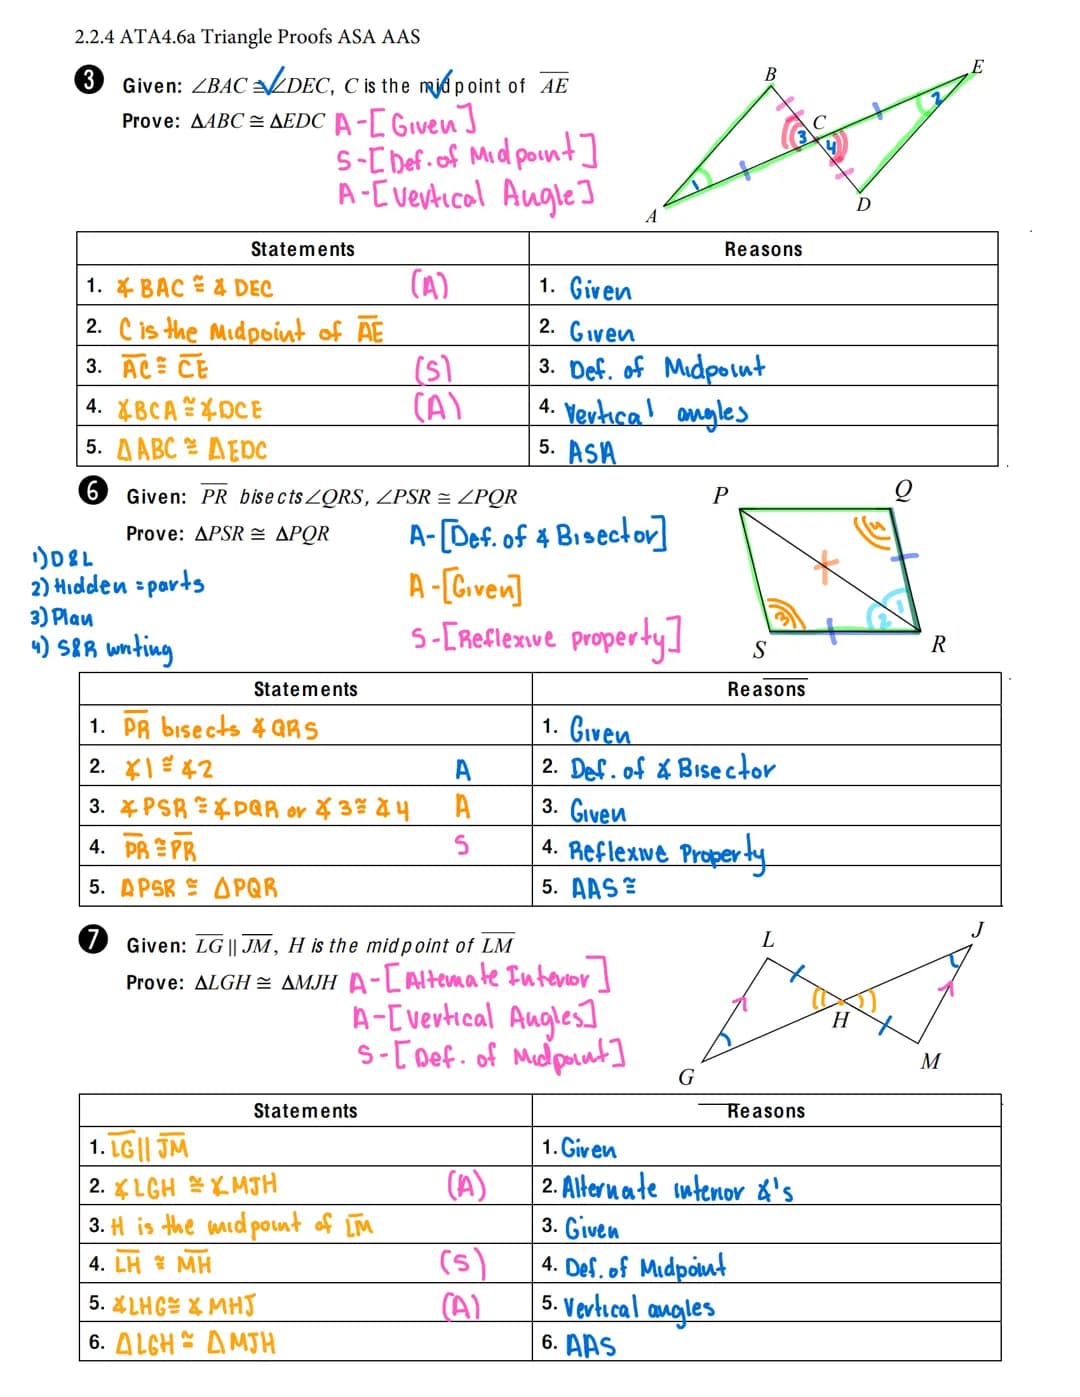 2.2.4 ATA4.6a Triangle Proofs ASA AAS
3 Given: ∠BAC ≅ ∠DEC, C is the midpoint of AE
Prove: ΔABC ≅ ΔEDC
A-[Given]
S-[Def. of Midpoint]
A-[Vertical Angle]
B
E
C
A
D
1
2
3
4
Statements Reasons
1. ∡BAC ≅ ∡DEC (A) 1. Given
2. C is the Midpoint of AE 2. Given
3. AC ≅ CE (S) 3. Def. of Midpoint
4. ∡BCA ≅ ∡DCE (A) 4. Vertical angles
5. ΔABC ≅ ΔEDC 5. ASA
6 Given: PR bisects ∠QRS, ∠PSR ≅ ∠PQR
Prove: ΔPSR ≅ ΔPQR
A-[Def. of ∡ Bisector]
A-[Given]
S-[Reflexive property]
1) D&L
2) Hidden = parts
3) Plan
4) S&R writing
P
Q
S
R
4
3
1
2
Statements Reasons
1. PR bisects ∡QRS 1. Given
2. ∡1 ≅ ∡2 A 2. Def. of ∡ Bisector
3. ∡PSR ≅ ∡PQR or ∡3 ≅ ∡4 A 3. Given
4. PR ≅ PR S 4. Reflexive Property
5. ΔPSR ≅ ΔPQR 5. AAS ≅
7 Given: LG || JM, H is the midpoint of LM
Prove: ΔLGH ≅ ΔMJH
A-[Alternate Interior]
A-[Vertical Angles]
S-[Def. of Midpoint]
L
J
H
G
M
Statements Reasons
1. LG || JM 1. Given
2. ∡LGH ≅ ∡MJH (A) 2. Alternate interior ∡'s
3. H is the midpoint of LM 3. Given
4. LH ≅ MH (S) 4. Def. of Midpoint
5. ∡LHG ≅ ∡MHJ (A) 5. Vertical angles
6. ΔLGH ≅ ΔMJH 6. AAS